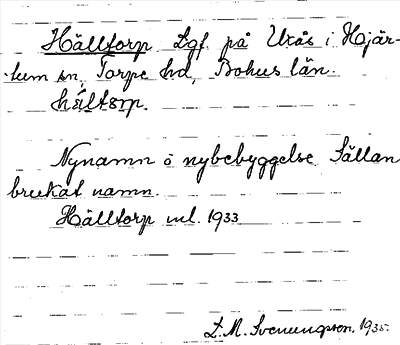 Hälltorp Lgf. på Utås i Hjär-
tum sn, Torpe hd, Bohus län.
hältorp.
Nynamn å nybebyggelse Sällan
brukat namn.
Hälltorp ml. 1933
D.M. Svenungson. 1935.